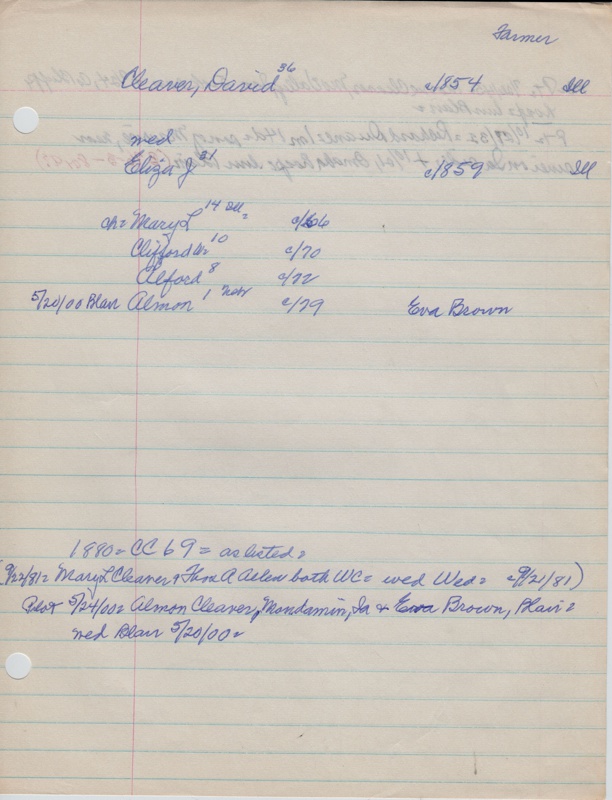 Farmer
Cleaver, David 36 c/1854 Ill
wed
Eliza J 21 c/1859 Ill
ch= Mary L 14 Ill= c/66
Clifford 10 c/70
Alford 8 c/72
5/20/00 Blair Almon 1 Nebr c/79 Eva Brown
1880= CC 69= as listed=
(9/22/81= Mary L Cleaver & Thos A Allen both WC= wed Wed= 9/21/81)
Pilot 5/24/00= Almon Cleaver, Mondamin, Ia & Eva Brown, Blair=
wed Blair 5/20/00=